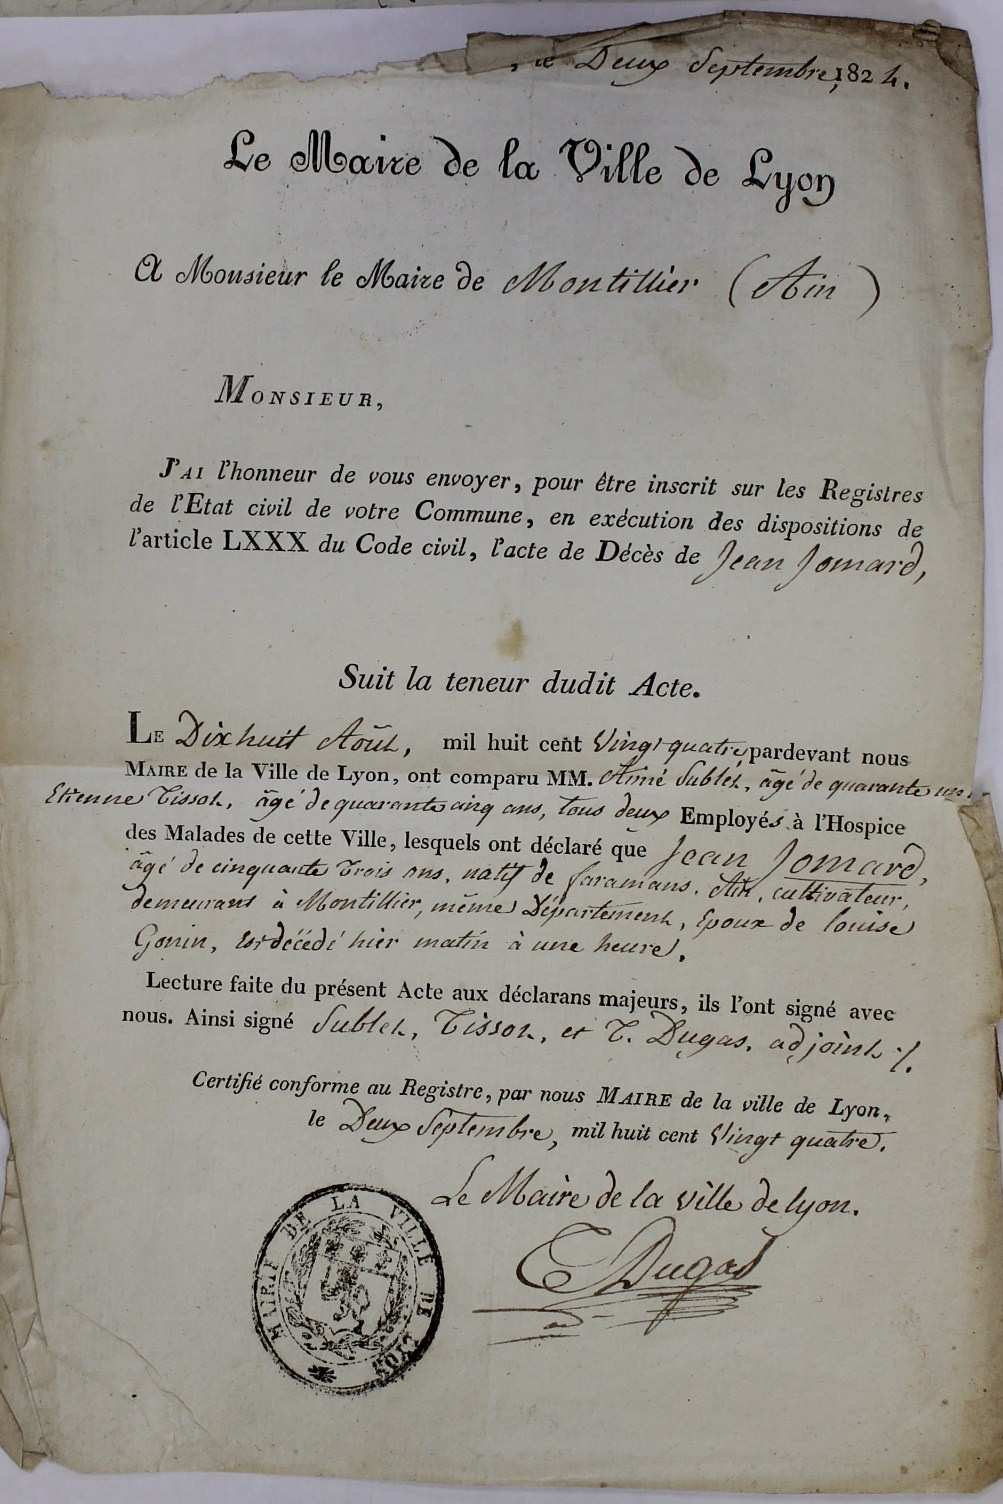 , le Deux Septembre, 1824.
Le Maire de la Ville de Lyon
A Monsieur le Maire de Montillier (Ain)
MONSIEUR,
J'AI l'honneur de vous envoyer, pour être inscrit sur les Registres
de l'Etat civil de votre Commune, en exécution des dispositions de
l'article LXXX du Code civil, l'acte de Décès de Jean Jomard,
Suit la teneur dudit Acte.
LE Dixhuit Août, mil huit cent Vingt quatre pardevant nous
MAIRE de la Ville de Lyon, ont comparu MM. Aimé Sublet, âgé de quarante un
Etienne Tissot, âgé de quarante cinq ans, tous deux Employés à l'Hospice
des Malades de cette Ville, lesquels ont déclaré que Jean Jomard,
âgé de cinquante trois ans, natif de faramans, Ain, cultivateur,
demeurant à Montillier, même Département, Epoux de louise
Gonin, est décédé hier matin à une heure.
Lecture faite du présent Acte aux déclarans majeurs, ils l'ont signé avec
nous. Ainsi signé Sublet, Tissot, et T. Dugas, adjoint ./.
Certifié conforme au Registre, par nous MAIRE de la ville de Lyon,
le Deux Septembre, mil huit cent Vingt quatre.
Le Maire de la ville de lyon.
Dugas
MAIRIE DE LA VILLE DE LYON